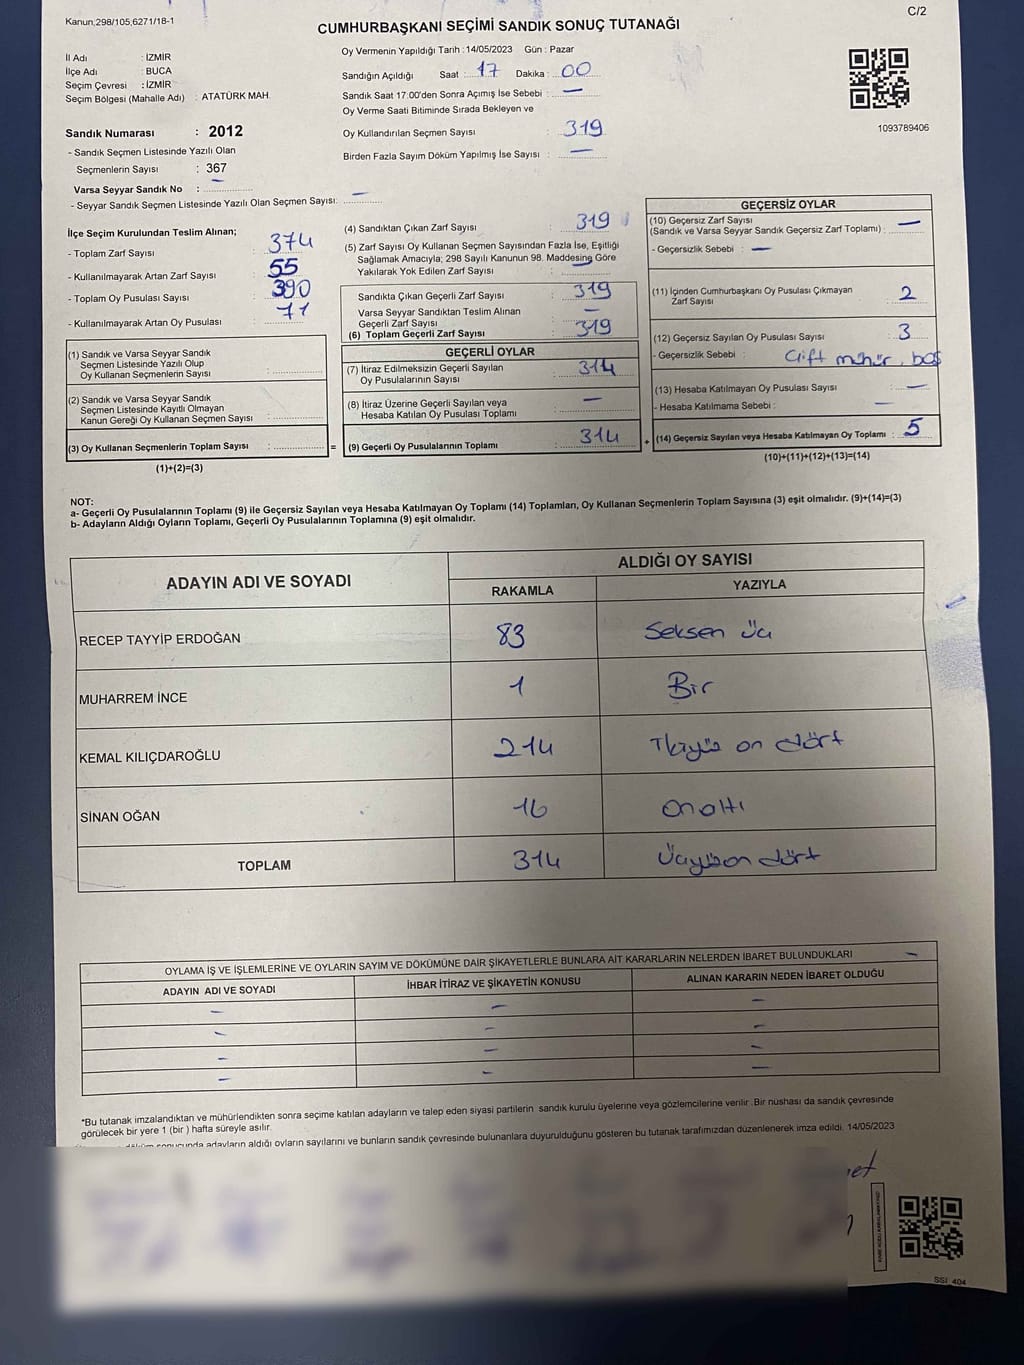 Kanun,298/105,6271/18-1
C/2
CUMHURBAŞKANI SEÇİMİ SANDIK SONUÇ TUTANAĞI
İl Adı : İZMİR
İlçe Adı : BUCA
Seçim Çevresi : İZMİR
Seçim Bölgesi (Mahalle Adı) : ATATÜRK MAH.
Sandık Numarası : 2012
- Sandık Seçmen Listesinde Yazılı Olan
Seçmenlerin Sayısı : 367
Varsa Seyyar Sandık No : –
- Seyyar Sandık Seçmen Listesinde Yazılı Olan Seçmen Sayısı: –
Oy Vermenin Yapıldığı Tarih : 14/05/2023 Gün : Pazar
Sandığın Açıldığı Saat : 17 Dakika : 00
Sandık Saat 17:00'den Sonra Açımış İse Sebebi : –
Oy Verme Saati Bitiminde Sırada Bekleyen ve
Oy Kullandırılan Seçmen Sayısı : 319
Birden Fazla Sayım Döküm Yapılmış İse Sayısı : –
1093789406
İlçe Seçim Kurulundan Teslim Alınan;
- Toplam Zarf Sayısı : 374
- Kullanılmayarak Artan Zarf Sayısı : 55
- Toplam Oy Pusulası Sayısı : 390
- Kullanılmayarak Artan Oy Pusulası : 71
(1) Sandık ve Varsa Seyyar Sandık
Seçmen Listesinde Yazılı Olup
Oy Kullanan Seçmenlerin Sayısı :
(2) Sandık ve Varsa Seyyar Sandık
Seçmen Listesinde Kayıtlı Olmayan
Kanun Gereği Oy Kullanan Seçmen Sayısı :
(3) Oy Kullanan Seçmenlerin Toplam Sayısı : =
(1)+(2)=(3)
(4) Sandıktan Çıkan Zarf Sayısı : 319
(5) Zarf Sayısı Oy Kullanan Seçmen Sayısından Fazla İse, Eşitliği
Sağlamak Amacıyla; 298 Sayılı Kanunun 98. Maddesine Göre
Yakılarak Yok Edilen Zarf Sayısı : –
Sandıkta Çıkan Geçerli Zarf Sayısı : 319
Varsa Seyyar Sandıktan Teslim Alınan
Geçerli Zarf Sayısı : –
(6) Toplam Geçerli Zarf Sayısı : 319
GEÇERLİ OYLAR
(7) İtiraz Edilmeksizin Geçerli Sayılan
Oy Pusulalarının Sayısı : 314
(8) İtiraz Üzerine Geçerli Sayılan veya
Hesaba Katılan Oy Pusulası Toplamı : –
(9) Geçerli Oy Pusulalarının Toplamı : 314 +
GEÇERSİZ OYLAR
(10) Geçersiz Zarf Sayısı
(Sandık ve Varsa Seyyar Sandık Geçersiz Zarf Toplamı) : –
- Geçersizlik Sebebi : –
(11) İçinden Cumhurbaşkanı Oy Pusulası Çıkmayan
Zarf Sayısı : 2
(12) Geçersiz Sayılan Oy Pusulası Sayısı : 3
- Geçersizlik Sebebi : Çift mühür, boş
(13) Hesaba Katılmayan Oy Pusulası Sayısı : –
- Hesaba Katılmama Sebebi : –
(14) Geçersiz Sayılan veya Hesaba Katılmayan Oy Toplamı : 5
(10)+(11)+(12)+(13)=(14)
NOT:
a- Geçerli Oy Pusulalarının Toplamı (9) ile Geçersiz Sayılan veya Hesaba Katılmayan Oy Toplamı (14) Toplamları, Oy Kullanan Seçmenlerin Toplam Sayısına (3) eşit olmalıdır. (9)+(14)=(3)
b- Adayların Aldığı Oyların Toplamı, Geçerli Oy Pusulalarının Toplamına (9) eşit olmalıdır.
ADAYIN ADI VE SOYADI ALDIĞI OY SAYISI
RAKAMLA YAZIYLA
RECEP TAYYİP ERDOĞAN 83 Seksen üç
MUHARREM İNCE 1 Bir
KEMAL KILIÇDAROĞLU 214 İkiyüz on dört
SİNAN OĞAN 16 Onaltı
TOPLAM 314 Üçyüzon dört
OYLAMA İŞ VE İŞLEMLERİNE VE OYLARIN SAYIM VE DÖKÜMÜNE DAİR ŞİKAYETLERLE BUNLARA AİT KARARLARIN NELERDEN İBARET BULUNDUKLARI –
ADAYIN ADI VE SOYADI İHBAR İTİRAZ VE ŞİKAYETİN KONUSU ALINAN KARARIN NEDEN İBARET OLDUĞU
– – –
– – –
– – –
– – –
*Bu tutanak imzalandıktan ve mühürlendikten sonra seçime katılan adayların ve talep eden siyasi partilerin sandık kurulu üyelerine veya gözlemcilerine verilir. Bir nüshası da sandık çevresinde
görülecek bir yere 1 (bir ) hafta süreyle asılır.
sonucunda adayların aldığı oyların sayılarını ve bunların sandık çevresinde bulunanlara duyurulduğunu gösteren bu tutanak tarafımızdan düzenlenerek imza edildi. 14/05/2023
SSİ 404